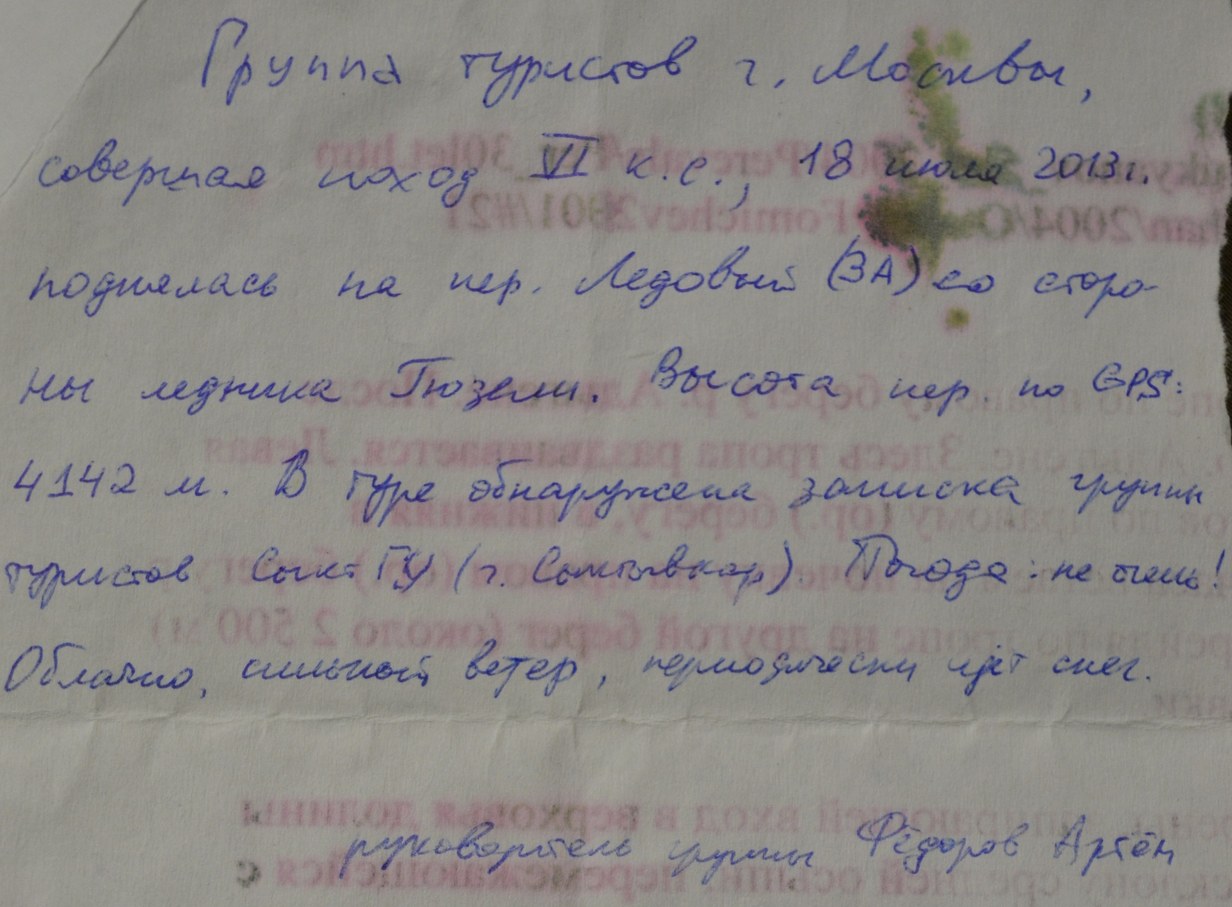 Группа туристов г. Москвы,
совершая поход VI к.с., 18 июля 2013г.
поднялась на пер. Ледовый (3А) со сторо-
ны ледника Тюзели. Высота пер. по GPS:
4142 м. В туре обнаружена записка группы
туристов СыктГУ (г. Сыктывкар). Погода: не очень!
Облачно, сильный ветер, периодически идёт снег.
руководитель группы Фёдоров Артём